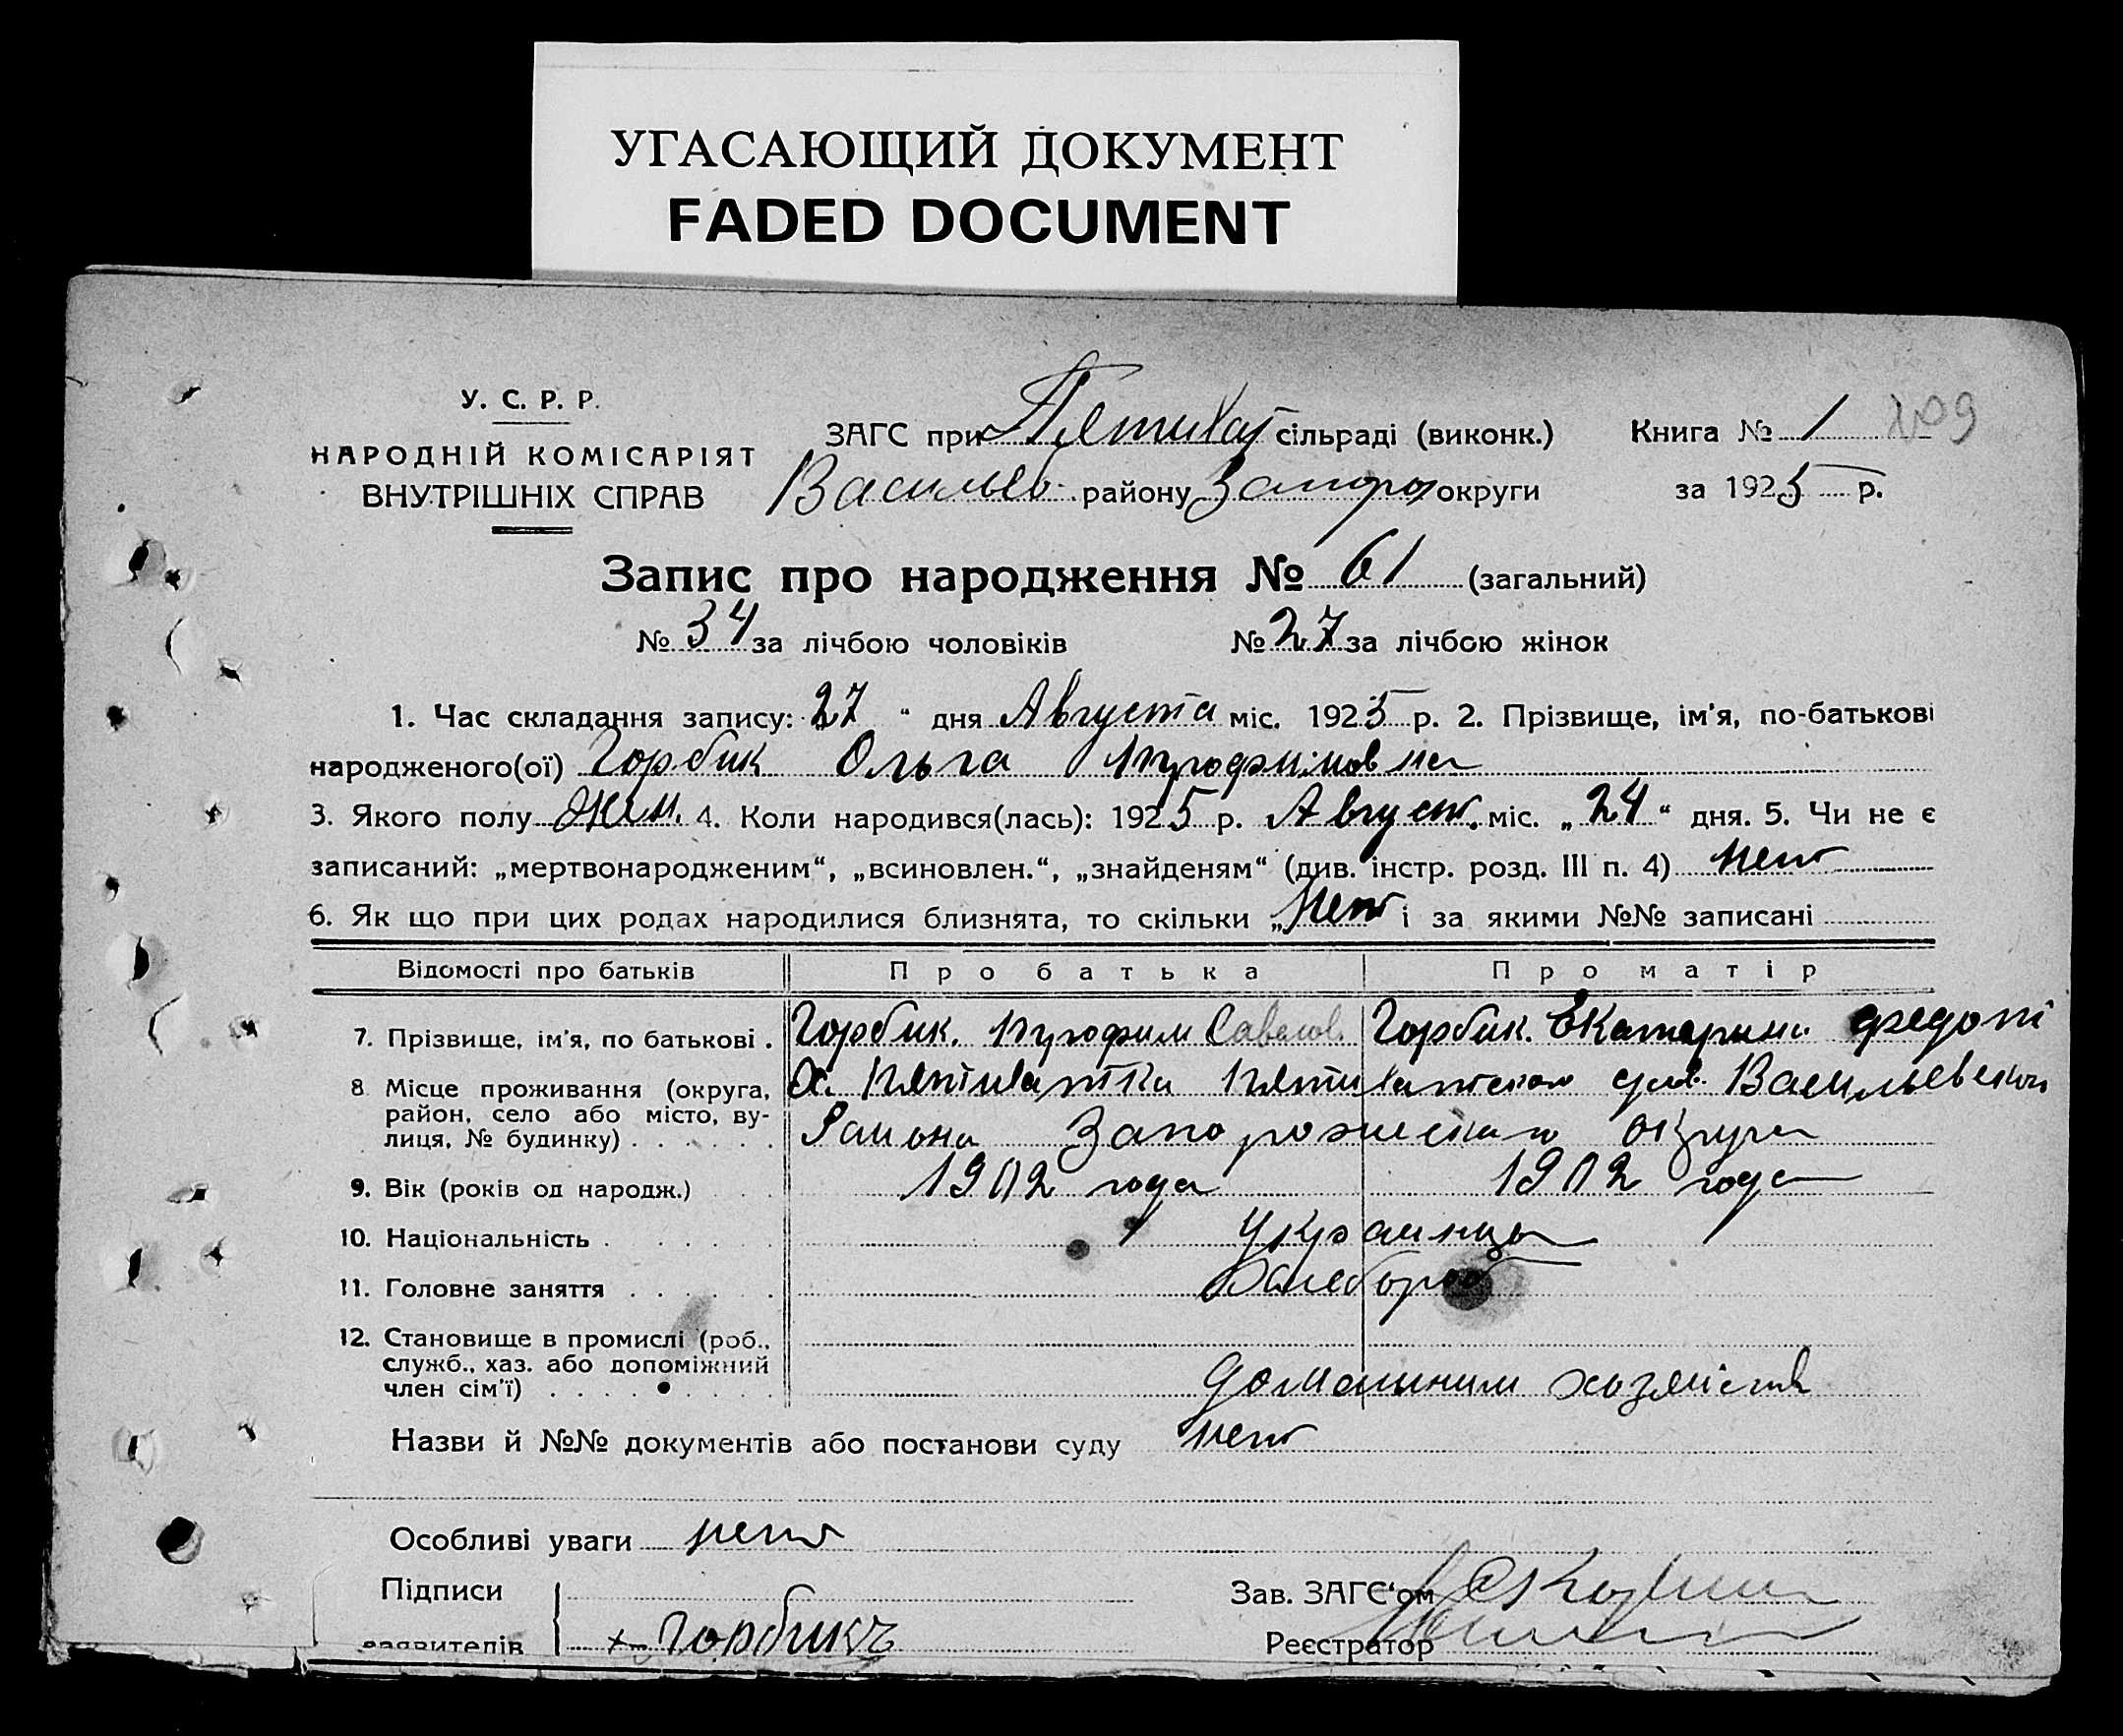 УГАСАЮЩИЙ ДОКУМЕНТ
FADED DOCUMENT
У. С. Р. Р.
НАРОДНІЙ КОМІСАРІЯТ
ВНУТРІШНІХ СПРАВ
ЗАГС при Пятихат сільраді (виконк.) Книга № 1 209
Васильев. району Запорож округи за 1925 р.
Запис про народження № 61 (загальний)
№ 34 за лічбою чоловіків № 27 за лічбою жінок
1. Час складання запису: 27 " дня Августа міс. 1925 р. 2. Прізвище, ім'я, по-батькові
народженого(ої) Горбик Ольга Трофимовна
3. Якого полу Жен. 4. Коли народився(лась): 1925 р. Август. міс. „ 24 “ дня. 5. Чи не є
записаний: „мертвонародженим“, „всиновлен.“, „знайденям“ (див. інстр. розд. III п. 4) нет
6. Як що при цих родах народилися близнята, то скільки „ нет і за якими №№ записані
Відомості про батьків Про батька Про матір
7. Прізвище, ім'я, по батькові . Горбик. Трофим Савелов. Горбик. Екатерина Федот
8 Місце проживання (округа, район, село або місто, вулиця, № будинку) . . . . . . Х. Пятихатка Пятихатского Васильевского
Района Запорожского Округа
9. Вік (років од народж.) 1902 года 1902 года
10. Національність . . . . . Украинцы
11. Головне заняття . . . . . Хлебороб
12. Становище в промислі (роб., служб., хаз. або допоміжний член сім'ї) . . . . . . . домашним хозяйств
Назви й №№ документів або постанови суду нет
Особливі уваги нет
Підписи
заявителів Горбикъ
Зав. ЗАГС'ом
Реєстратор